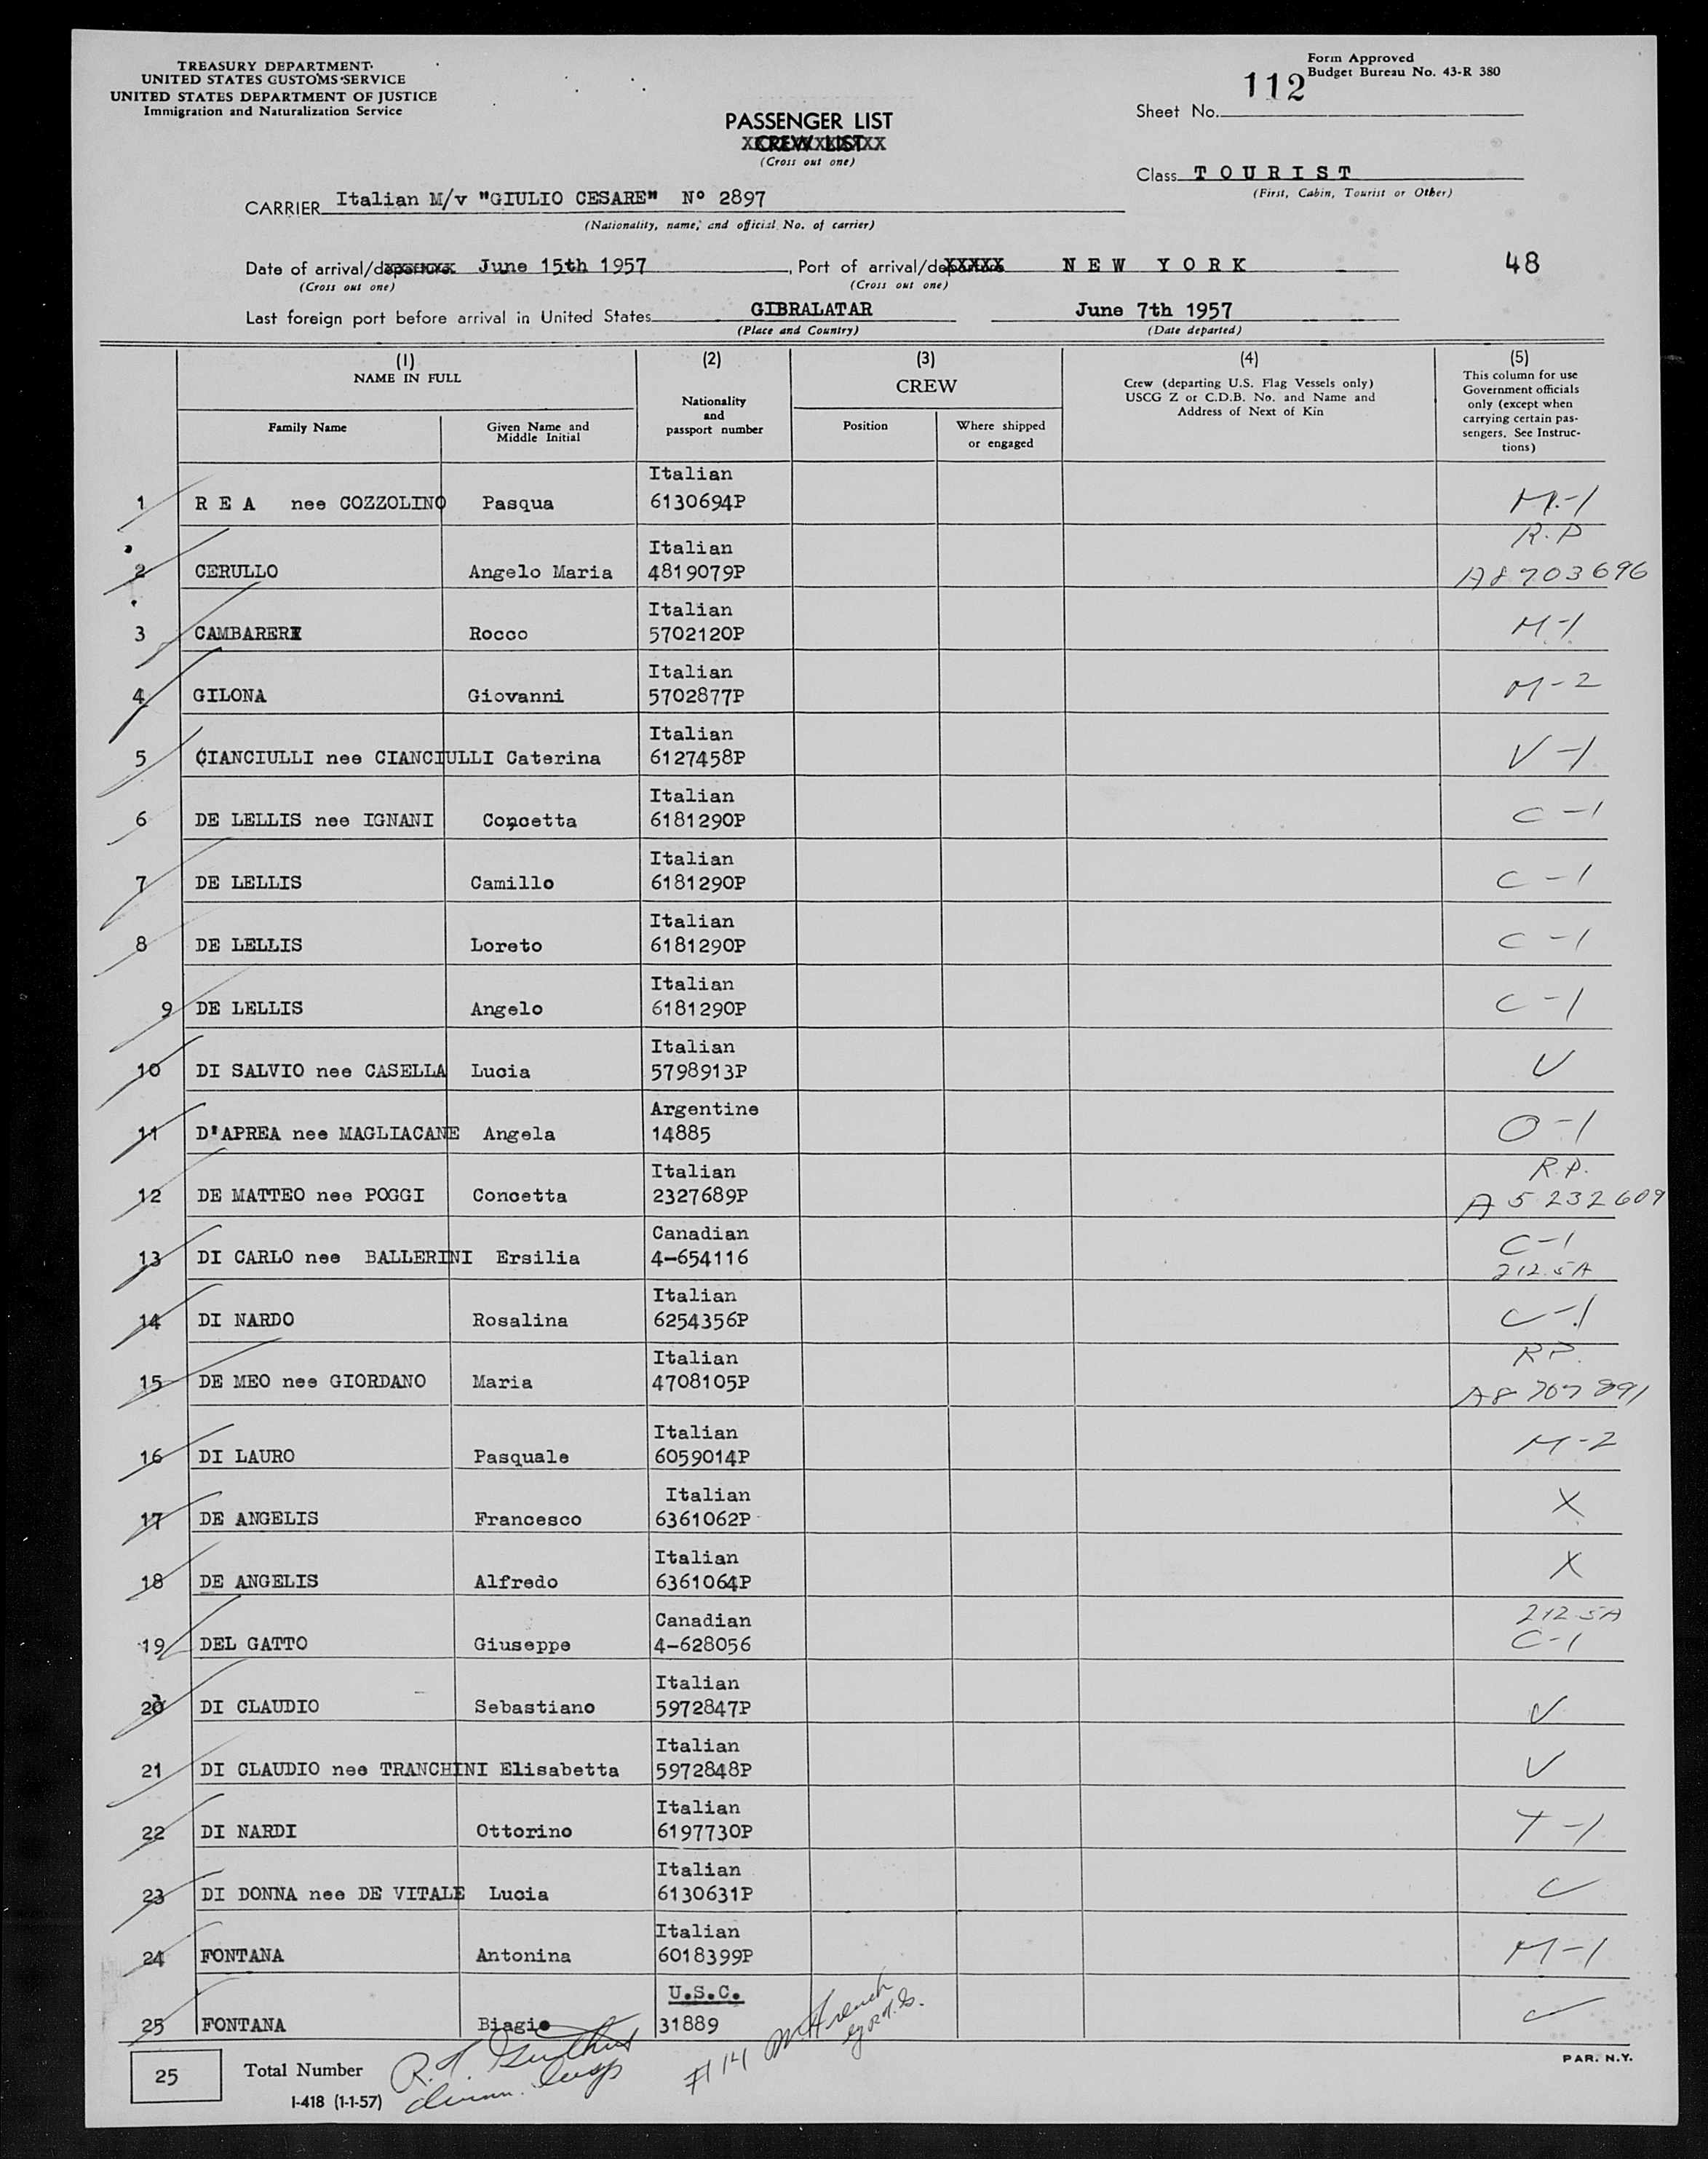 TREASURY DEPARTMENT
UNITED STATES CUSTOMS SERVICE
UNITED STATES DEPARTMENT OF JUSTICE
Immigration and Naturalization Service
Form Approved
Budget Bureau No. 43-R 380
112
Sheet No.
PASSENGER LIST
CREW LIST
(Cross out one)
Class TOURIST
(First, Cabin, Tourist or Other)
CARRIER Italian M/v "GIULIO CESARE" Nº 2897
(Nationality, name, and official No. of carrier)
Date of arrival/departure June 15th 1957, Port of arrival/departure NEW YORK
48
(Cross out one) (Cross out one)
Last foreign port before arrival in United States GIBRALATAR June 7th 1957
(Place and Country) (Date departed)
(1) NAME IN FULL
Family Name
Given Name and Middle Initial
(2)
Nationality and passport number
(3)
CREW
Position
Where shipped or engaged
(4)
Crew (departing U.S. Flag Vessels only)
USCG Z or C.D.B. No. and Name and
Address of Next of Kin
(5)
This column for use
Government officials
only (except when
carrying certain pas-
sengers. See Instruc-
tions)
1 REA nee COZZOLINO Pasqua Italian 6130694P M-1
2 CERULLO Angelo Maria Italian 4819079P R.P A8703696
3 CAMBARERI Rocco Italian 5702120P M-1
4 GILONA Giovanni Italian 5702877P M-2
5 CIANCIULLI nee CIANCIULLI Caterina Italian 6127458P V-1
6 DE LELLIS nee IGNANI Concetta Italian 6181290P C-1
7 DE LELLIS Camillo Italian 6181290P C-1
8 DE LELLIS Loreto Italian 6181290P C-1
9 DE LELLIS Angelo Italian 6181290P C-1
10 DI SALVIO nee CASELLA Lucia Italian 5798913P
11 D'APREA nee MAGLIACANE Angela Argentine 14885 O-1
12 DE MATTEO nee POGGI Concetta Italian 2327689P R.P. A5232609
13 DI CARLO nee BALLERINI Ersilia Canadian 4-654116 C-1 212.5A
14 DI NARDO Rosalina Italian 6254356P C-1
15 DE MEO nee GIORDANO Maria Italian 4708105P R.P. A8707891
16 DI LAURO Pasquale Italian 6059014P M-2
17 DE ANGELIS Francesco Italian 6361062P X
18 DE ANGELIS Alfredo Italian 6361064P X
19 DEL GATTO Giuseppe Canadian 4-628056 212 5A C-1
20 DI CLAUDIO Sebastiano Italian 5972847P
21 DI CLAUDIO nee TRANCHINI Elisabetta Italian 5972848P
22 DI NARDI Ottorino Italian 6197730P T-1
23 DI DONNA nee DE VITALE Lucia Italian 6130631P
24 FONTANA Antonina Italian 6018399P M-1
25 FONTANA Biagio U.S.C. 31889
25
Total Number
I-418 (1-1-57)
#114
PAR. N.Y.